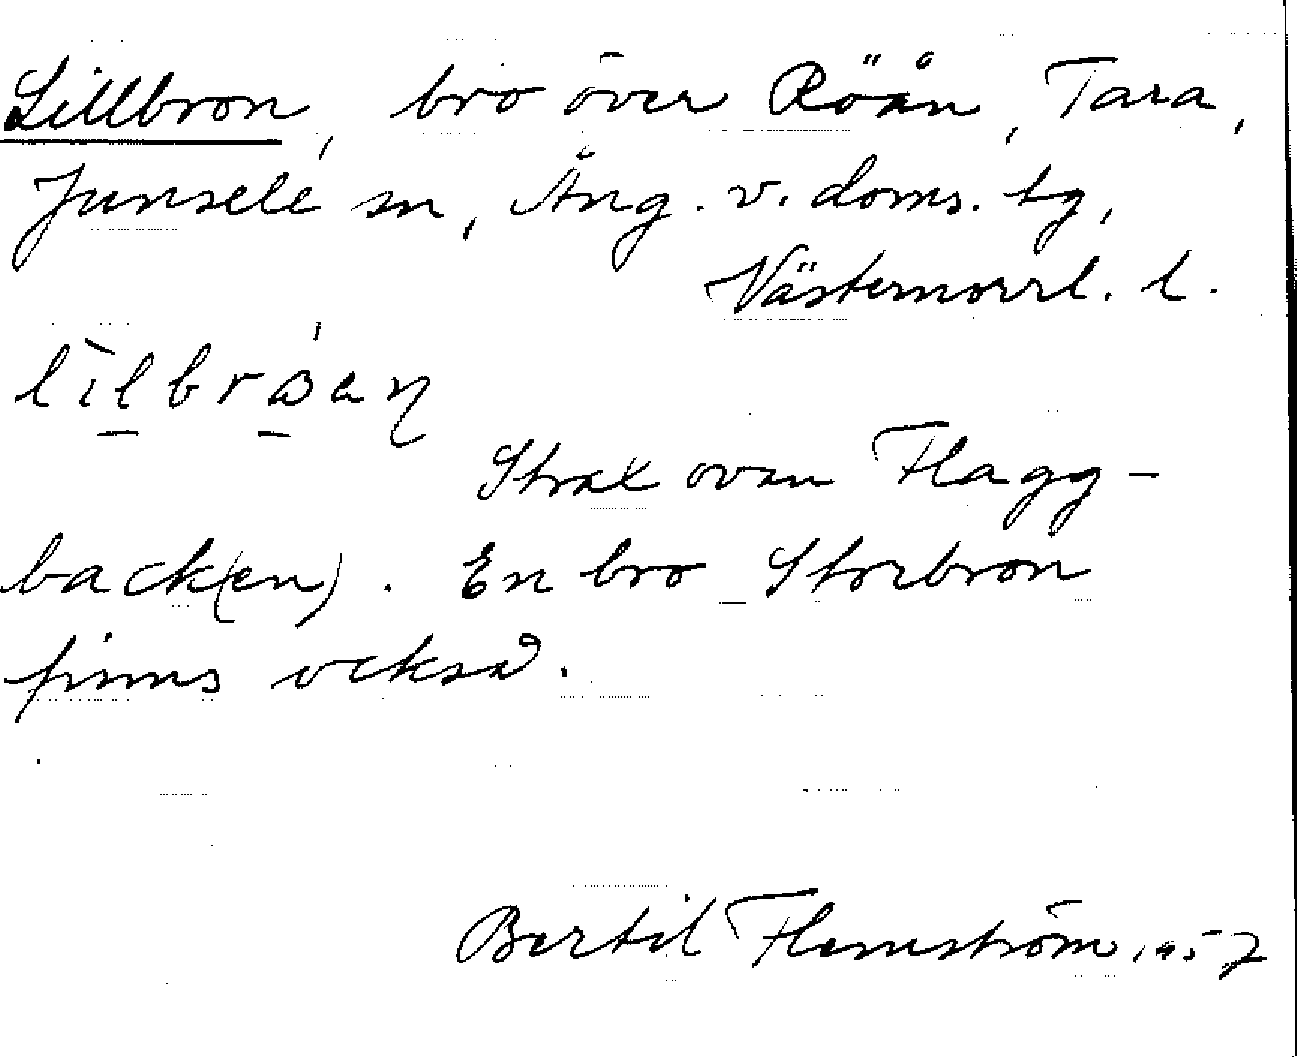 Lillbron, bro över Röån, Tara,
Junsele sn, Ång. v. doms. tg,
Västernorrl. l.
Strax ovan Flagg-
back(en). En bro Storbron
finns också.
Bertil Flemström 1957